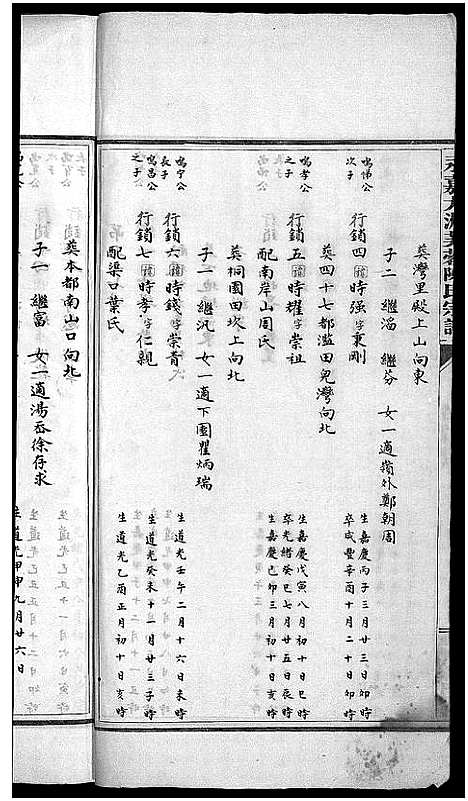 葬灣里殿上山向東
子二 繼滔 繼芬 女一適嶺外鄭朝周
鳴悌公
次子
行鎖四 時强字秉剛
生嘉慶丙子三月廿三日卯時
卒咸豐辛酉十月二十日卯時
葬四十七都盐田兒灣向北
鳴孝公
之子
行鎖五 時耀字崇祖
生嘉慶戊寅八月初十日巳時
卒光緒癸巳七月廿五日辰時
配南岸山周氏
生嘉慶己卯三月初十日亥時
葬桐園田坎上向北
子二 繼汎 女一適下園瞿炳瑞
鳴宁公
長子
行鎖六 時錢字崇青
生道光壬午二月十六日未時
鳴昌公
之子
行鎖七 時孝字仁親
生道光癸未十一月廿三子時
配渠口葉氏
生道光乙酉正月初十日亥時
葬本都南山口向北
子一 繼富 女一適湯岙徐存求
生道光甲申九月廿六日